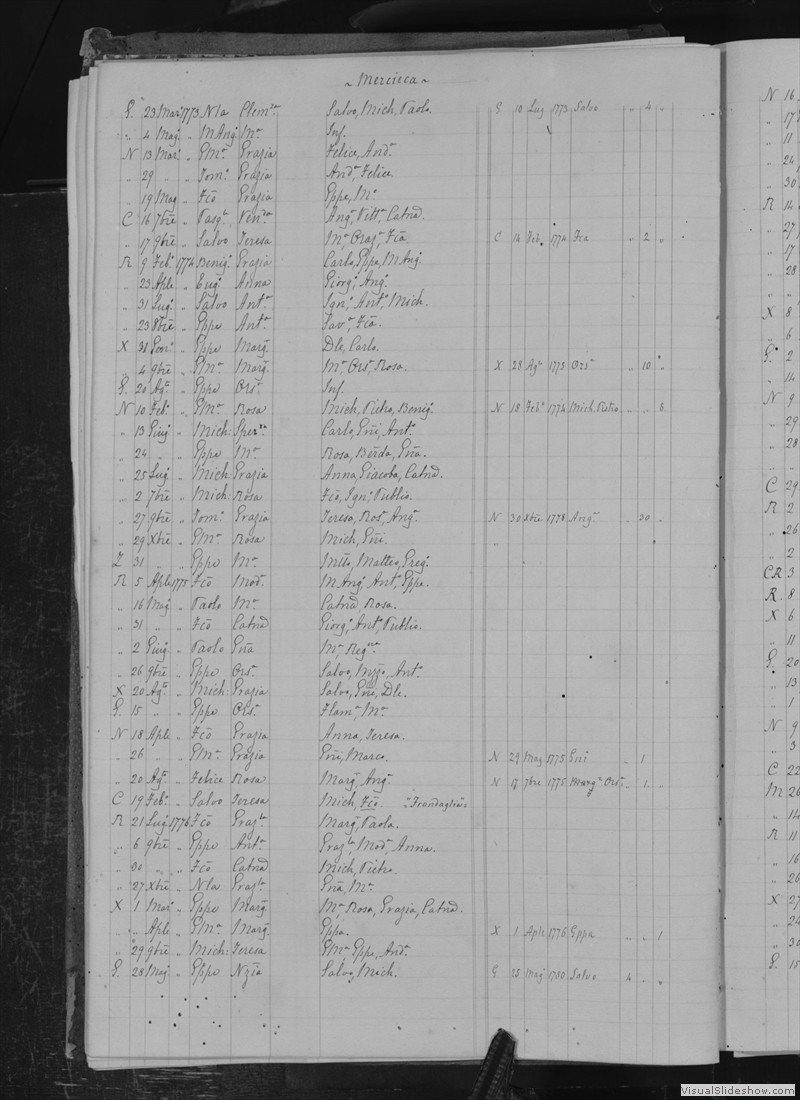 ~ Mercieca ~
G. 23 Mar: 1773 N/a Clem:za Salvo, Mich, Paolo G 10 Lug 1773 Salvo " 4 "
" 4 Mag " M Ang Ma Inf.
N 13 Mar: " G/Ma Grazia Felice, And.a
" 29 " " Tom: Grazia And.a Felice
" 19 Mag " Fco Grazia Gppe, Ma
C 16 7bre " Pasq.e Vin.da Ang.a Vitt.a Catnd.
" 17 9bre " Salvo Teresa Ma, Graz.a Fca. C 14 Feb. 1774 Fca " 2 "
R 9 Feb: 1774 Benig Grazia Carlo, Gppe, M Ang.
" 23 Aple " Eug: Anna Giorg: Ang.
" 31 Lug: " Salvo Ant.a Ign: Ant.o Mich.
" 23 8bre " Gppe Ant.a Sav.a Fca.
X 31 Gen: " Gppe Marg. Dle, Carlo.
" 4 9bre " G/Ma Marg. Ma Ors.a Rosa. X 28 Ag.o 1773 Ors.a " 10 "
G. 20 Ag.o " Gppe Ors.a Inf
N 10 Feb: " G/Ma Rosa Mich, Pietro, Benig. N 18 Feb.o 1774 Mich Pietro " " 8
" 13 Giug " Mich: Sper.za Carlo, Gni, Ant.
" 24 " " Gppe Ma Rosa, Berda, Gna.
" 25 Lug " Mich: Grazia Anna, Giacoba, Catnd.
" 2 7bre " Mich: Rosa Fco, Ign: Publio.
" 27 9bre " Tom: Grazia Teresa, Ros.a Ang. N 30 Xbre 1778 Ang. " 30 "
" 29 Xbre " G/Ma Rosa Mich, Gni.
Z 31 " " Gppe Ma Matteo, Greg.
R 5 Aple 1775 Fco Mod.a M Ang. Ant.o Gppe.
" 16 Mag " Paolo Ma Catnd, Rosa.
" 31 " " Fco Catnd Giorg: Ant.o Publio.
" 2 Giug " Paolo Gna Ma Reg.na
" 26 9bre " Gppe Ors.a Salvo, Ant.o
X 20 Ag.o " Mich: Grazia Salvo, Gni, Dle.
G. 15 " " Gppe Ors.a Flam.a Ma
N 18 Aple " Fco Grazia Anna, Teresa.
" 26 " " G/Ma Grazia Gni, Marco. N 29 Mag 1775 Gni " 1
" 20 Ag.o " Felice Rosa Marg, Ang. N 17 7bre 1775 Marg.a Ors.a " 1 "
C 19 Feb: " Salvo Teresa Mich, Fco. "Frandaglia"
R 21 Lug 1776 Fco Graz.la Marg, Paola.
" 6 9bre " Gppe Ant.a Graz.la Mod.a Anna.
" 30 " " Fco Catnd Mich, Pietro.
" 27 Xbre " N/a Graz.la Gna, Ma
X 1 Mar: " Gppe Marg. Ma Rosa, Grazia, Catnd.
" " Aple " G/Ma Marg. Gppa. X 1 Aple 1776 Gppa " " 1
" 29 9bre " Mich: Teresa G/Ma Gppe, And.a
G. 28 Mag " Gppe Nzia Salvo, Mich. G 23 Mag 1780 Salvo 4 " "
N 16
" 17
" 11
" 24
" 30
R 14
" 27
" 17
" 28
X 8
" 6
G. 2
" 14
N 9
" 29
" 28
C 29
R 2
" 26
" 2
CR 3
R. 8
X 6
" 11
G. 20
" 13
" 1
N 9
" 3
C 22
M 26
" 14
R 11
" 16
" 26
X 27
" 24
" 30
G. 15
VisualSlideshow.com